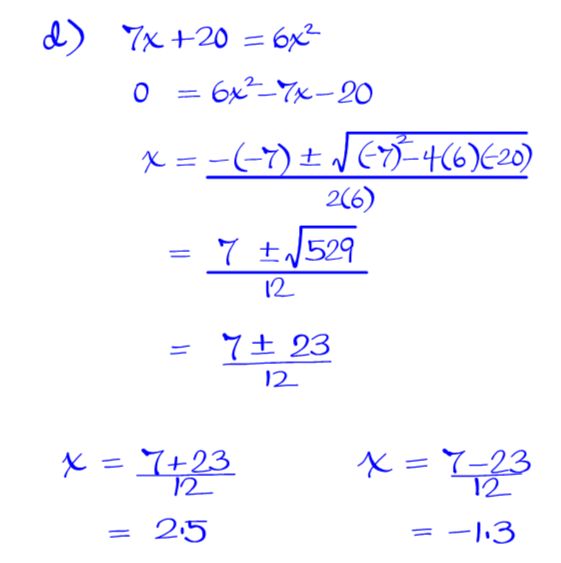 d) 7x + 20 = 6x²
0 = 6x² - 7x - 20
x = -(-7) ± √((-7)² - 4(6)(-20)) / 2(6)
= 7 ± √529 / 12
= 7 ± 23 / 12
x = 7+23 / 12    x = 7-23 / 12
= 2.5    = -1.3